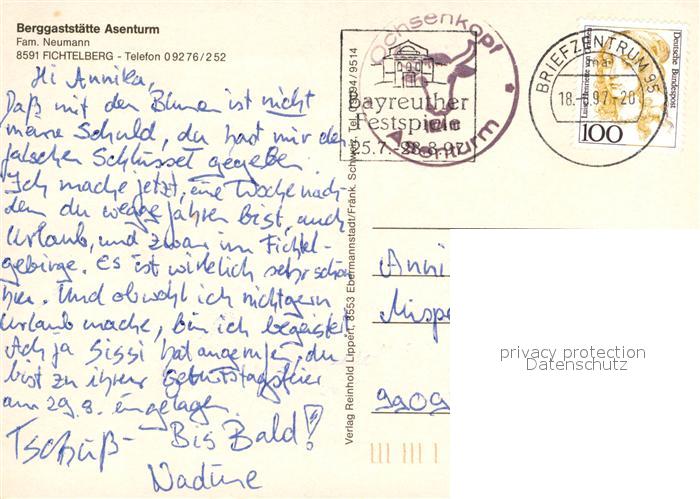 Berggaststätte Asenturm
Fam. Neumann
8591 FICHTELBERG - Telefon 09276/252
Hi Annika,
Daß mit den Blumen ist nicht
meine Schuld, du hast mir den
falschen Schlüssel gegeben.
Ich mache jetzt, eine Woche nach-
dem du weggefahren bist, auch
Urlaub, und zwar im Fichtel-
gebirge. Es ist wirklich sehr schön
hier. Und obwohl ich nicht gern
Urlaub mache, bin ich begeistert
Ach ja Sissi hat angerufen, du
bist zu ihrer Geburtstagsfeier
am 29.8. eingeladen.
Tschüß- Bis Bald!
Nadine
Ochsenkopf
Asenturm
Bayreuther
Festspiele
25.7.-28.8.97
BRIEFZENTRUM 95
18.8.97-20
Deutsche Bundespost
100
Verlag Reinhold Lippert, 8553 Ebermannstadt/Fränk. Schweiz, Tel. 09194/9514
Anni
Misp
9909
privacy protection
Datenschutz